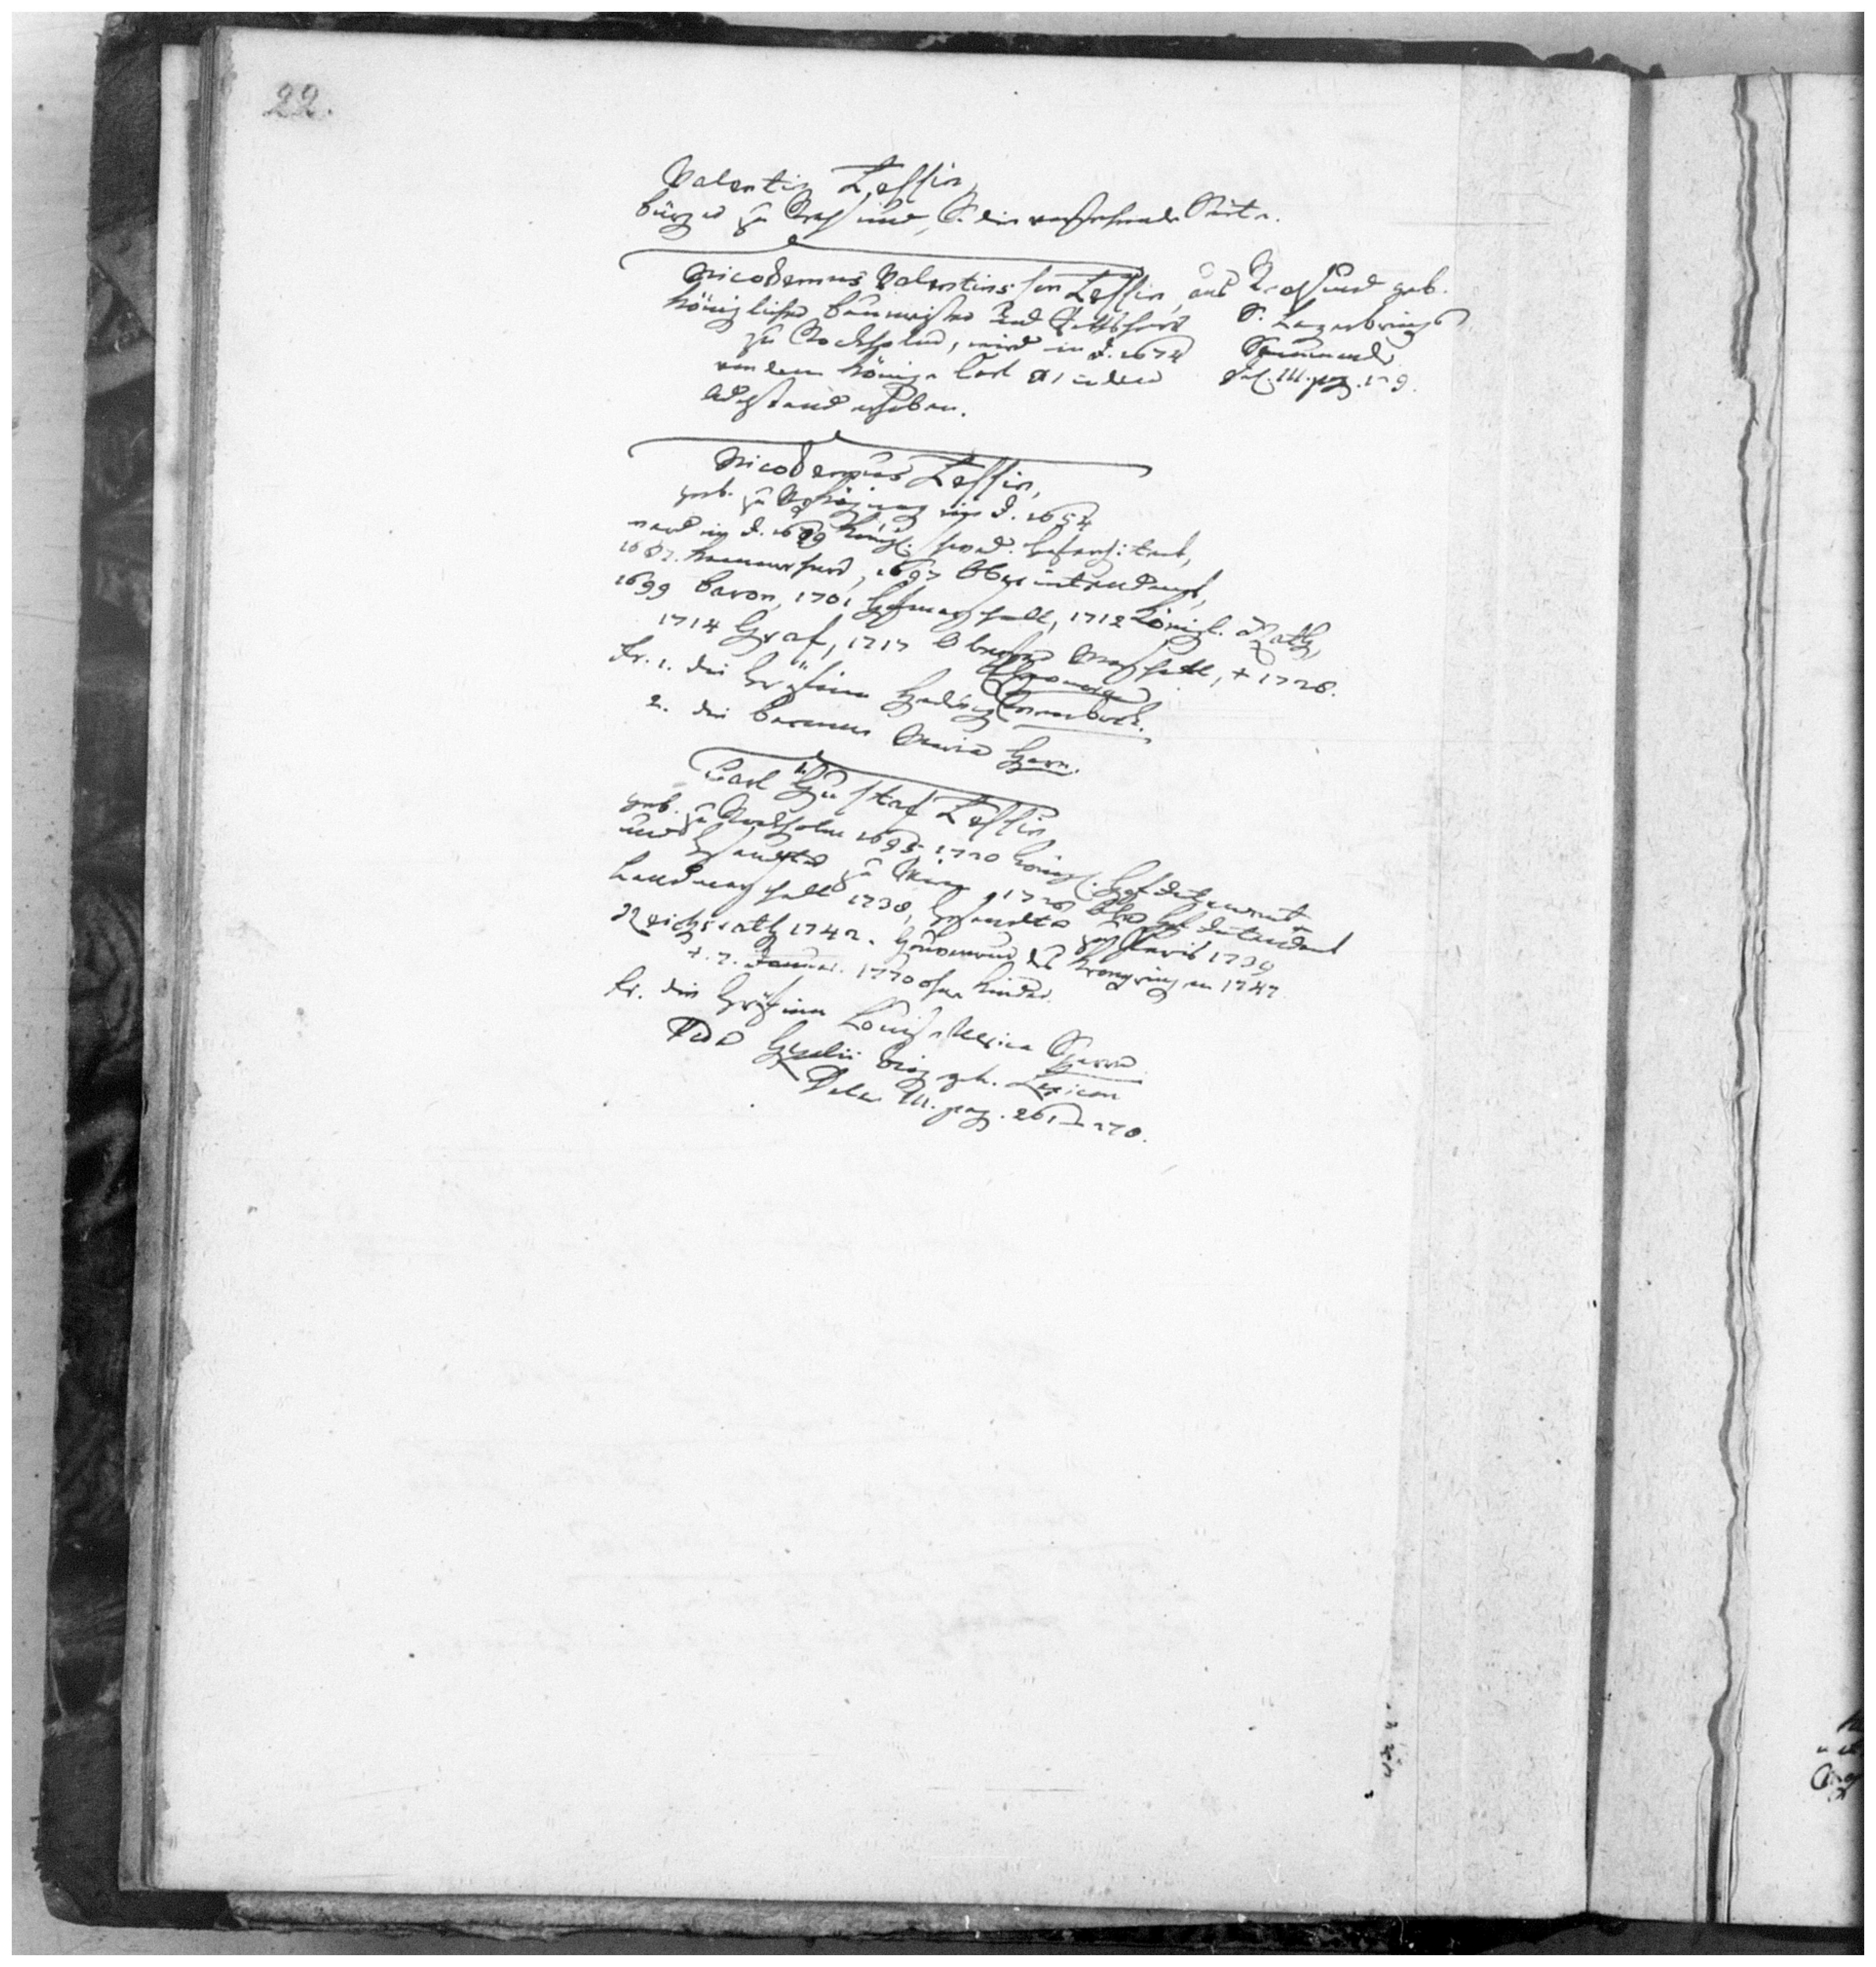 22.
Valentin Tessin,
bürger zu Stralsund, S. die vorstehende Seite.
Nicodemus Valentins son Tessin, aus Stralsund geb.
Königlicher baumeister und
zu Stockholm, wird in J. 1674
von dem Könige Carl XI in den
Adelstand erhoben.
S. Lagerbrings
Sammandr.
III. pag. 179.
Nicodemus Tessin,
geb. zu Nyköping im J. 1654
ward im J. 1689 Königl. schwed. hofarchitect,
1697. Kammerherr, 1697 Ober intendant,
1699 baron, 1701 Hofmarschall, 1712 Königl. Rath,
1714 Graf, 1717 Oberster Marschall, † 1728.
Fr. 1. die Gräfinn Hedwig Eleonora Stenbock.
2. die baronin Maria Horn.
1.
Carl Gustaf Tessin
geb. zu Stockholm 1695. 1720 Königl. Hofintendant
und Gesandter zu Wien, 1728 Ober Hof Intendant
Landmarschall 1738, Gesandter zu Paris 1739
Reichsrath 1741. Gouverneur des Kronprinzen 1747
†. 7. Januar. 1770 ohne Kinder.
Fr. die Gräfinn Louisa Ulrica Sparre
Vide Gezelii biograph. Lexicon
Delen III. pag. 261-270.